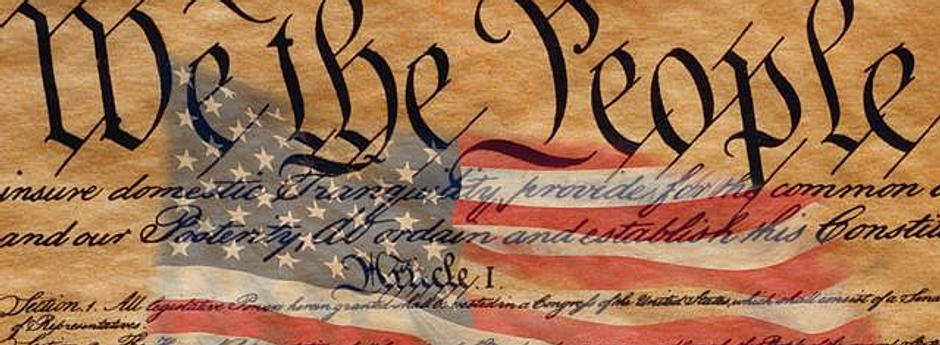 We the People
insure domestic Tranquility, provide for the common
and our Posterity, do ordain and establish this Constitu
Article. I.
Section. 1. All legislative Powers herein granted shall be vested in a Congress of the United States, which shall consist of a Sena
of Representatives.